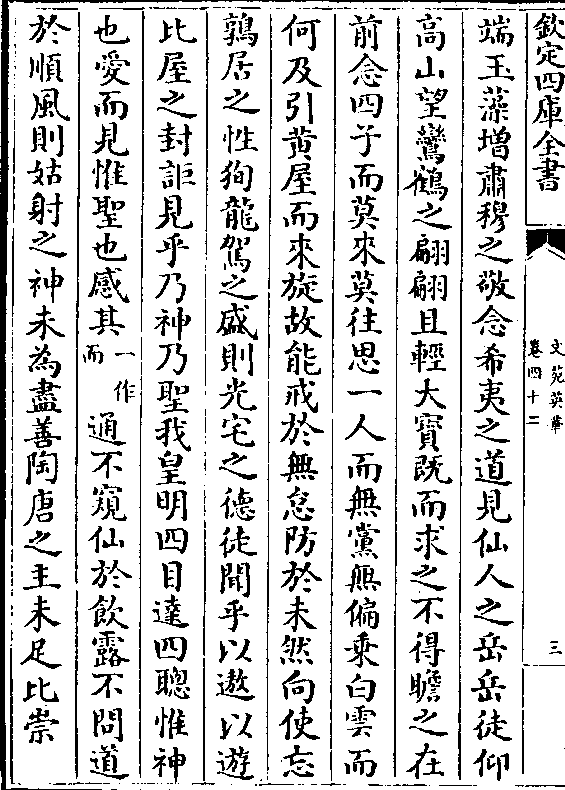 欽定四庫全書
文苑英華
卷四十二
三
端玉藻增肅穆之敬念希夷之道見仙人之岳岳徒仰
高山望鸞鶴之翩翩且輕大寳既而求之不得瞻之在
前念四子而莫來莫往思一人而無黨無偏乗白雲而
何及引黄屋而來旋故能戒於無怠防於未然向使忘
鶉居之性狥龍駕之盛則光宅之徳徒聞乎以遨以遊
比屋之封詎見乎乃神乃聖我皇明四目達四聰惟神
也愛而見惟聖也感其一作而通不窺仙於飲露不問道
於順風則姑射之神未為盡善陶唐之主未足比崇